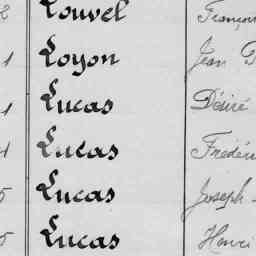 2 Louvel François
1 Loyon Jean
1 Lucas Désiré
1 Lucas Frédéric
5 Lucas Joseph
5 Lucas Henri